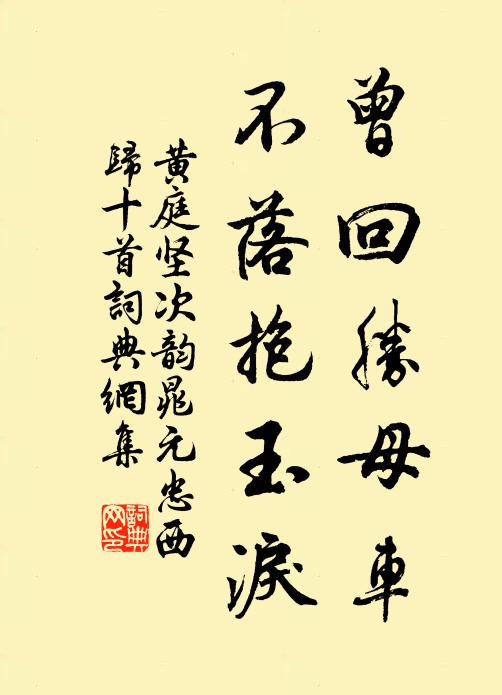 曾回勝母車
不落抱玉淚
黄庭坚次韵晁元忠西
歸十首詞典網集
詞典
网印